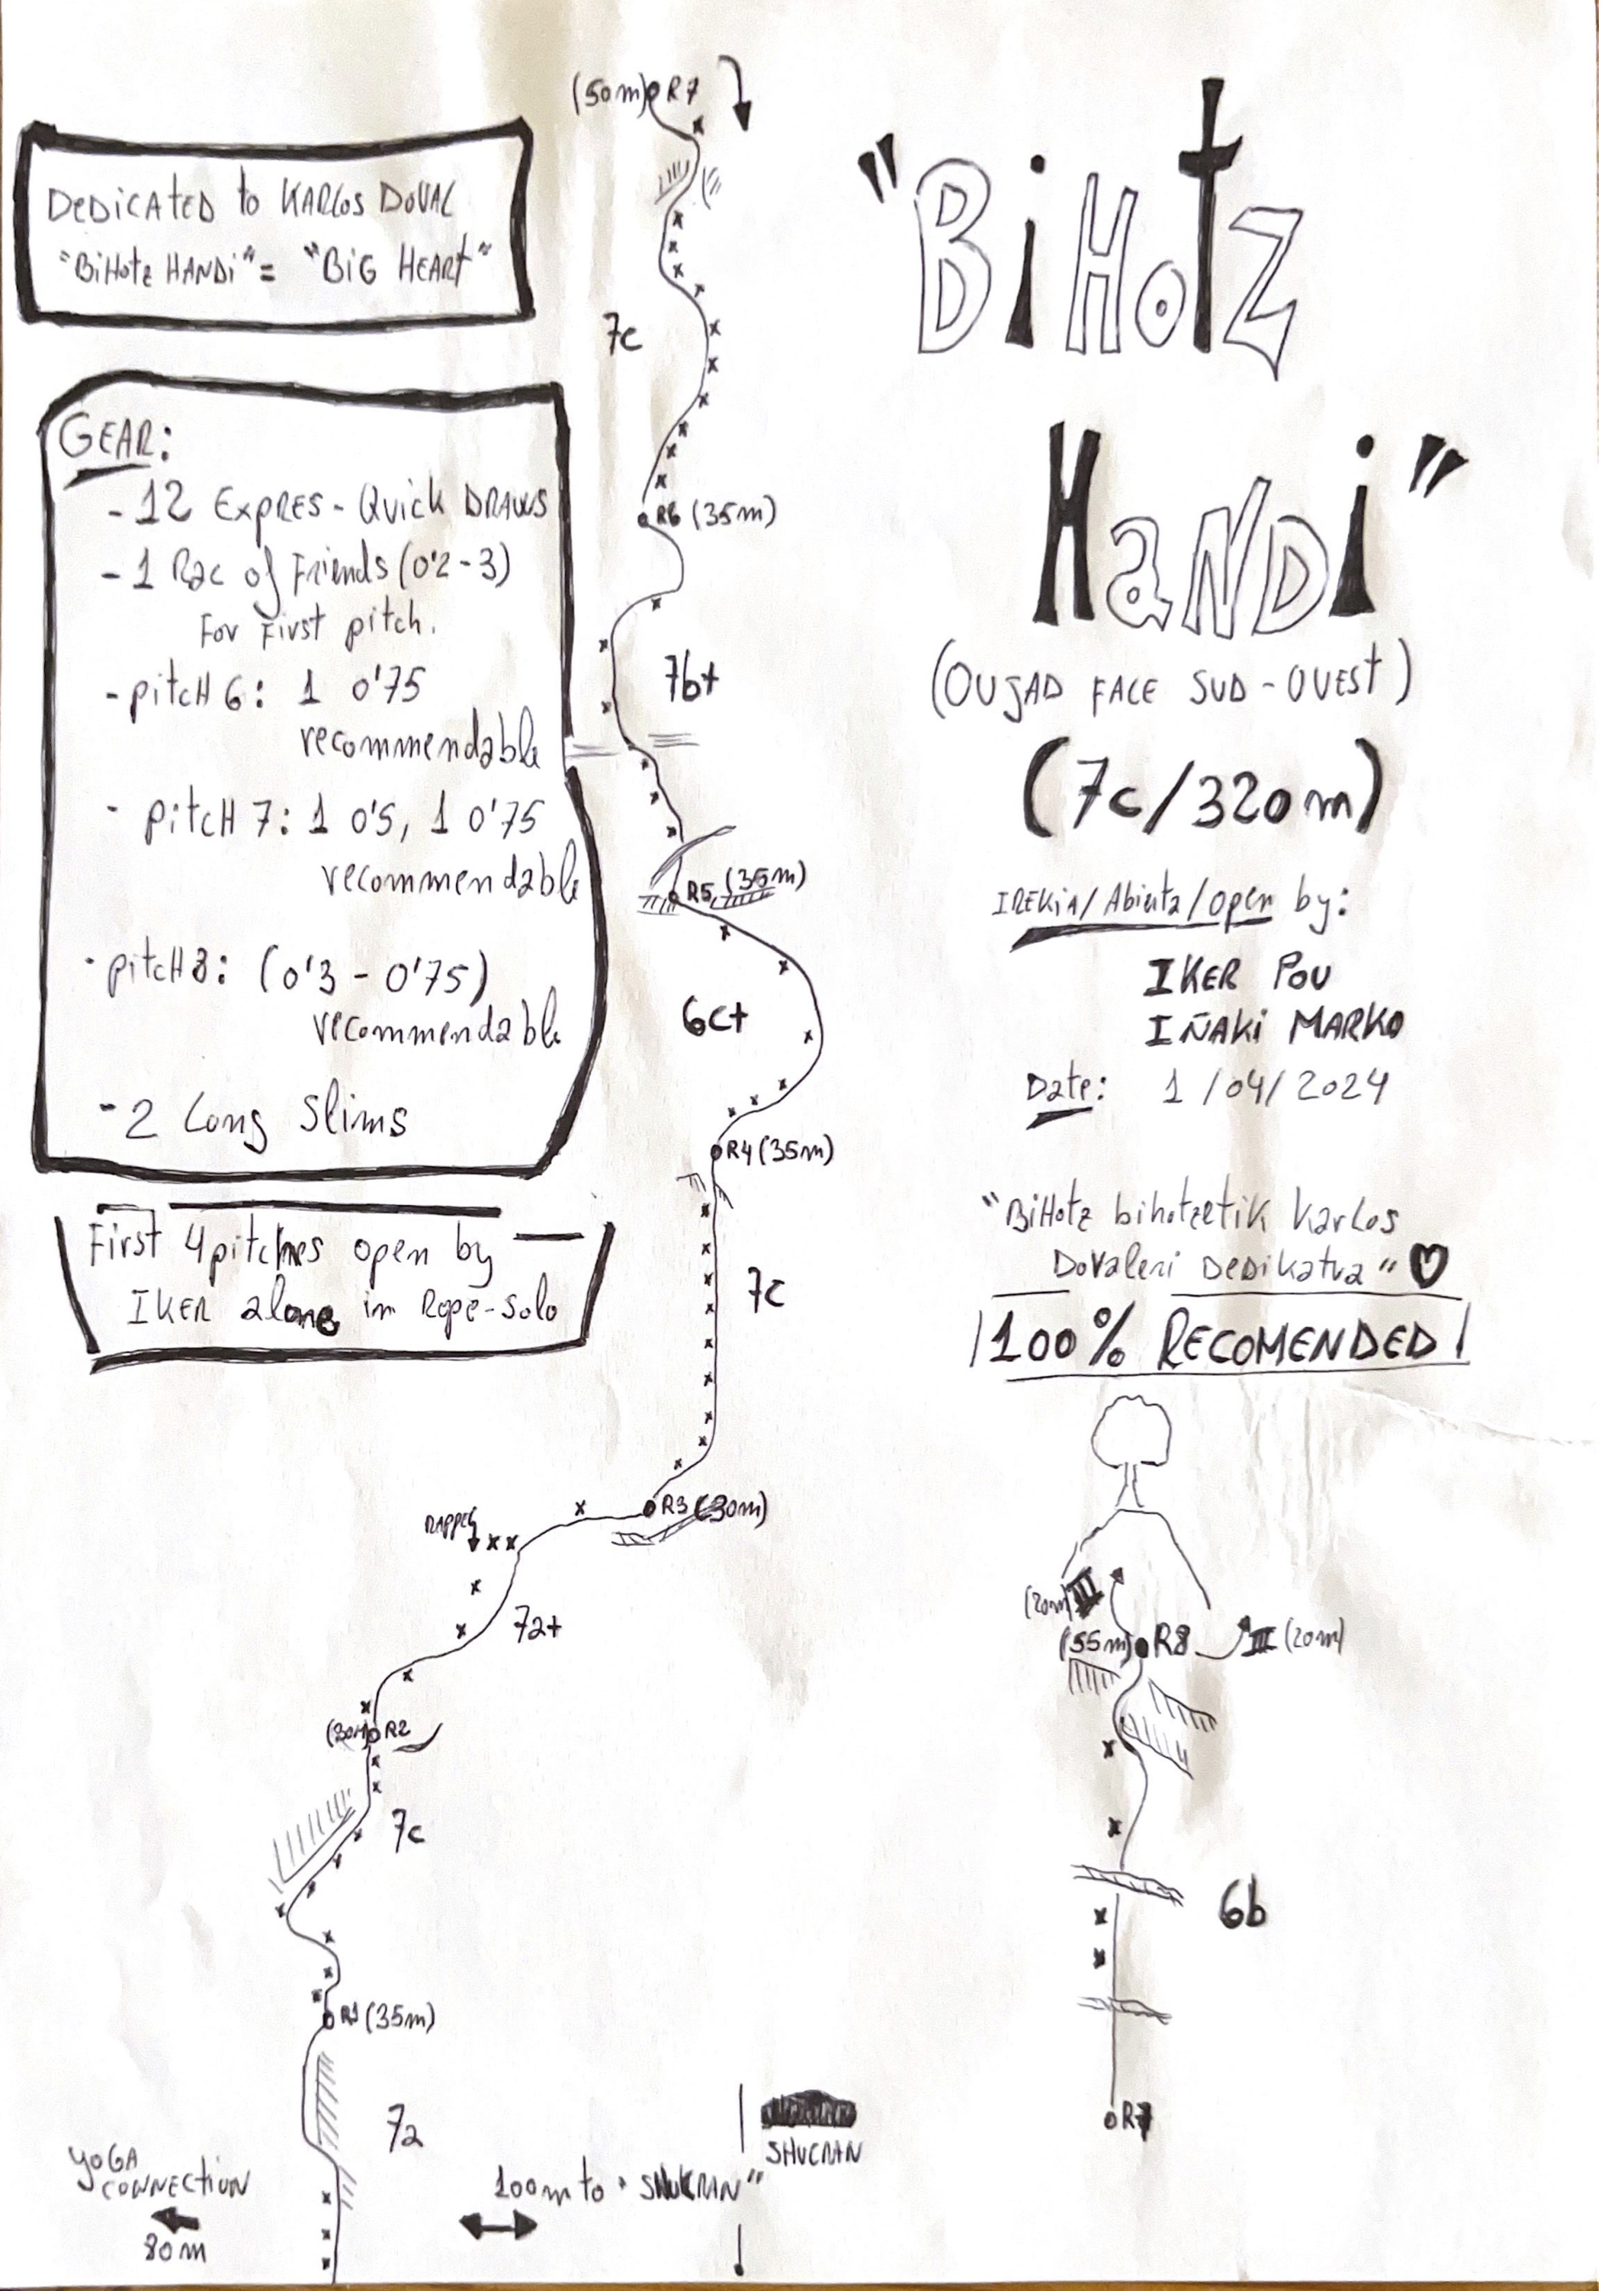 DEDICATED to KARLOS DOVAL
"BiHotz HANDi" = "BiG HEARt"
GEAR:
- 12 EXPRES - Quick DRAWS
- 1 Rac of Friends (0'2 - 3)
For First pitch.
- pitcH 6: 1 0'75
recommendable
- pitcH 7: 1 0'5, 1 0'75
recommendable
- pitcH 8: (0'3 - 0'75)
recommendable
- 2 Long Slims
First 4 pitches open by
IKER alone in Rope-solo
(50m) R7
7c
R6 (35m)
7b+
R5 (35m)
6c+
R4 (35m)
7c
R3 (30m)
RAPPEL
7a+
(30m) R2
7c
R1 (35m)
7a
YOGA
CONNECTION
80m
100m to "SHUKRAN"
SHUCRAN
"BiHotz
HaNDi"
(OUJAD FACE SUD-OUESt)
(7c/320m)
IREKiA/Abierta/open by:
IKER POU
IÑAKi MARKO
Date: 1/04/2024
"BiHotz bihotzetik Karlos
Dovaleri DEDiKatua"
¡100% RECOMENDED!
(20m) III
(55m) R8 III (20m)
6b
R7